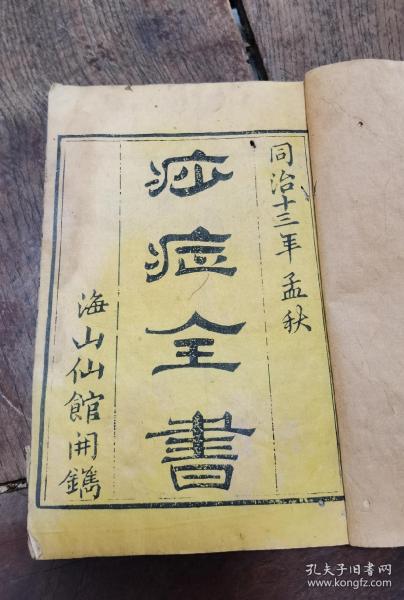 同治十三年孟秋
痧症全書
海山仙館開鐫
孔夫子旧书网
www.kongfz.com